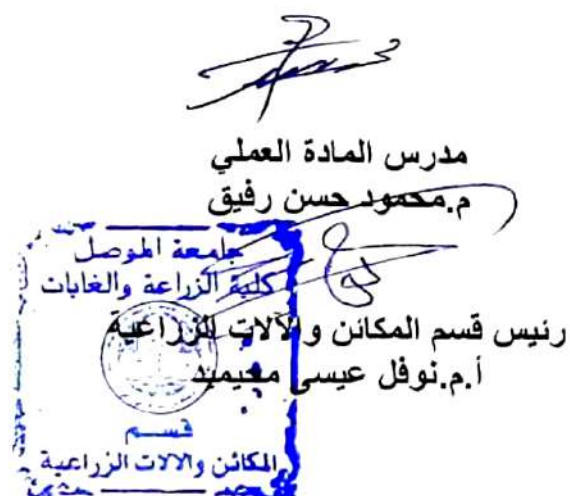 مدرس المادة العملي
م.محمود حسن رفيق
جامعة الموصل
كلية الزراعة والغابات
رئيس قسم المكائن والآلات الزراعية
أ.م.نوفل عيسى محيميد
قسم
المكائن والالات الزراعية